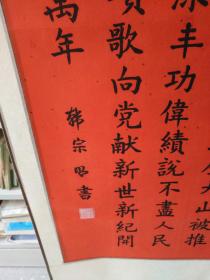 大山被推
丰功偉績說不盡人民
歌向党献新世新紀開
萬年
韩宗書